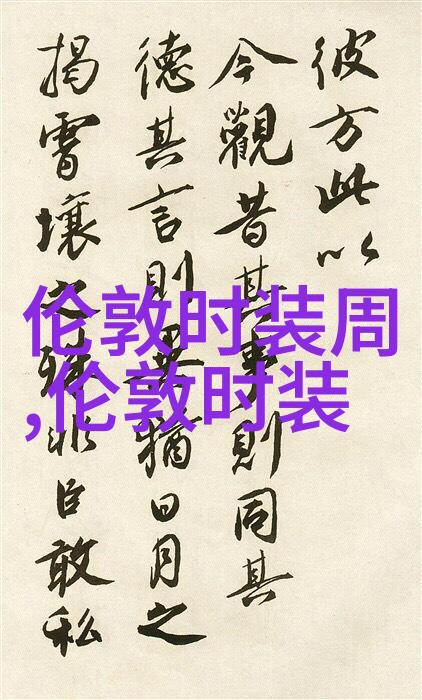 彼方此以
今觀昔其事則同其
德其言則異猶日月之
揭霄壤之殊非臣敢私
伦敦时装周
,伦敦时装